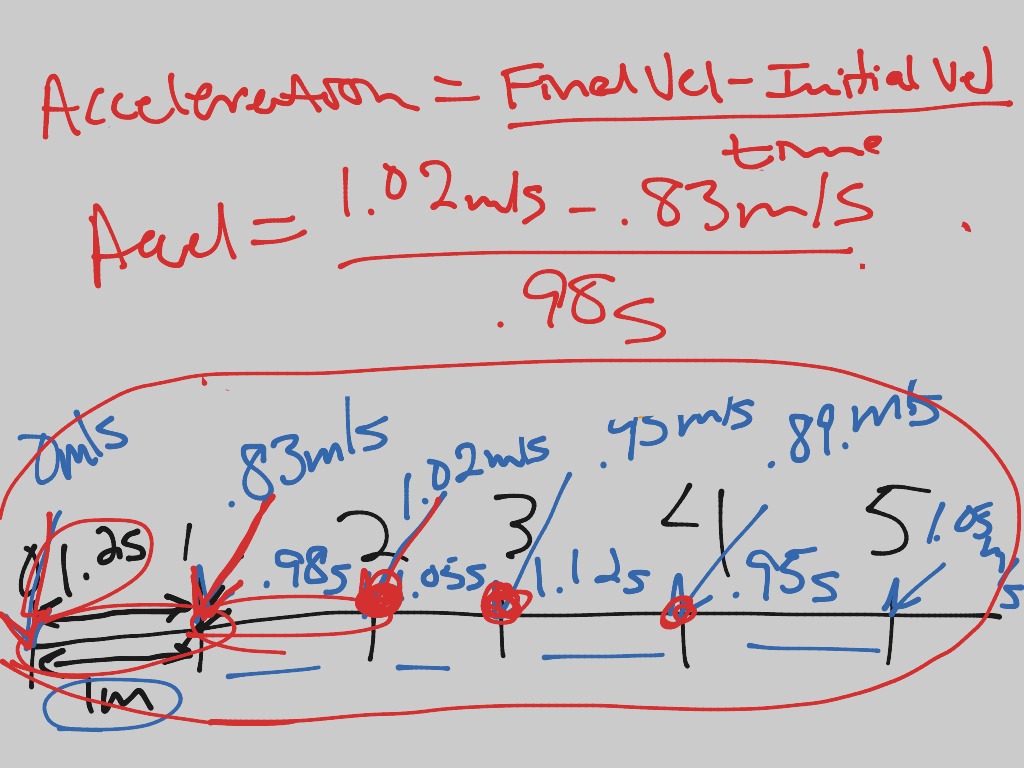 Acceleration = Final Vel - Initial Vel
time
Accel = 1.02 m/s - .83 m/s
.98 s
0 m/s .83 m/s 1.02 m/s .95 m/s .89 m/s
0 1 2 3 4 5 1.05 m/s
1.2s .98 s 1.05 s 1.12 s .95 s
1m